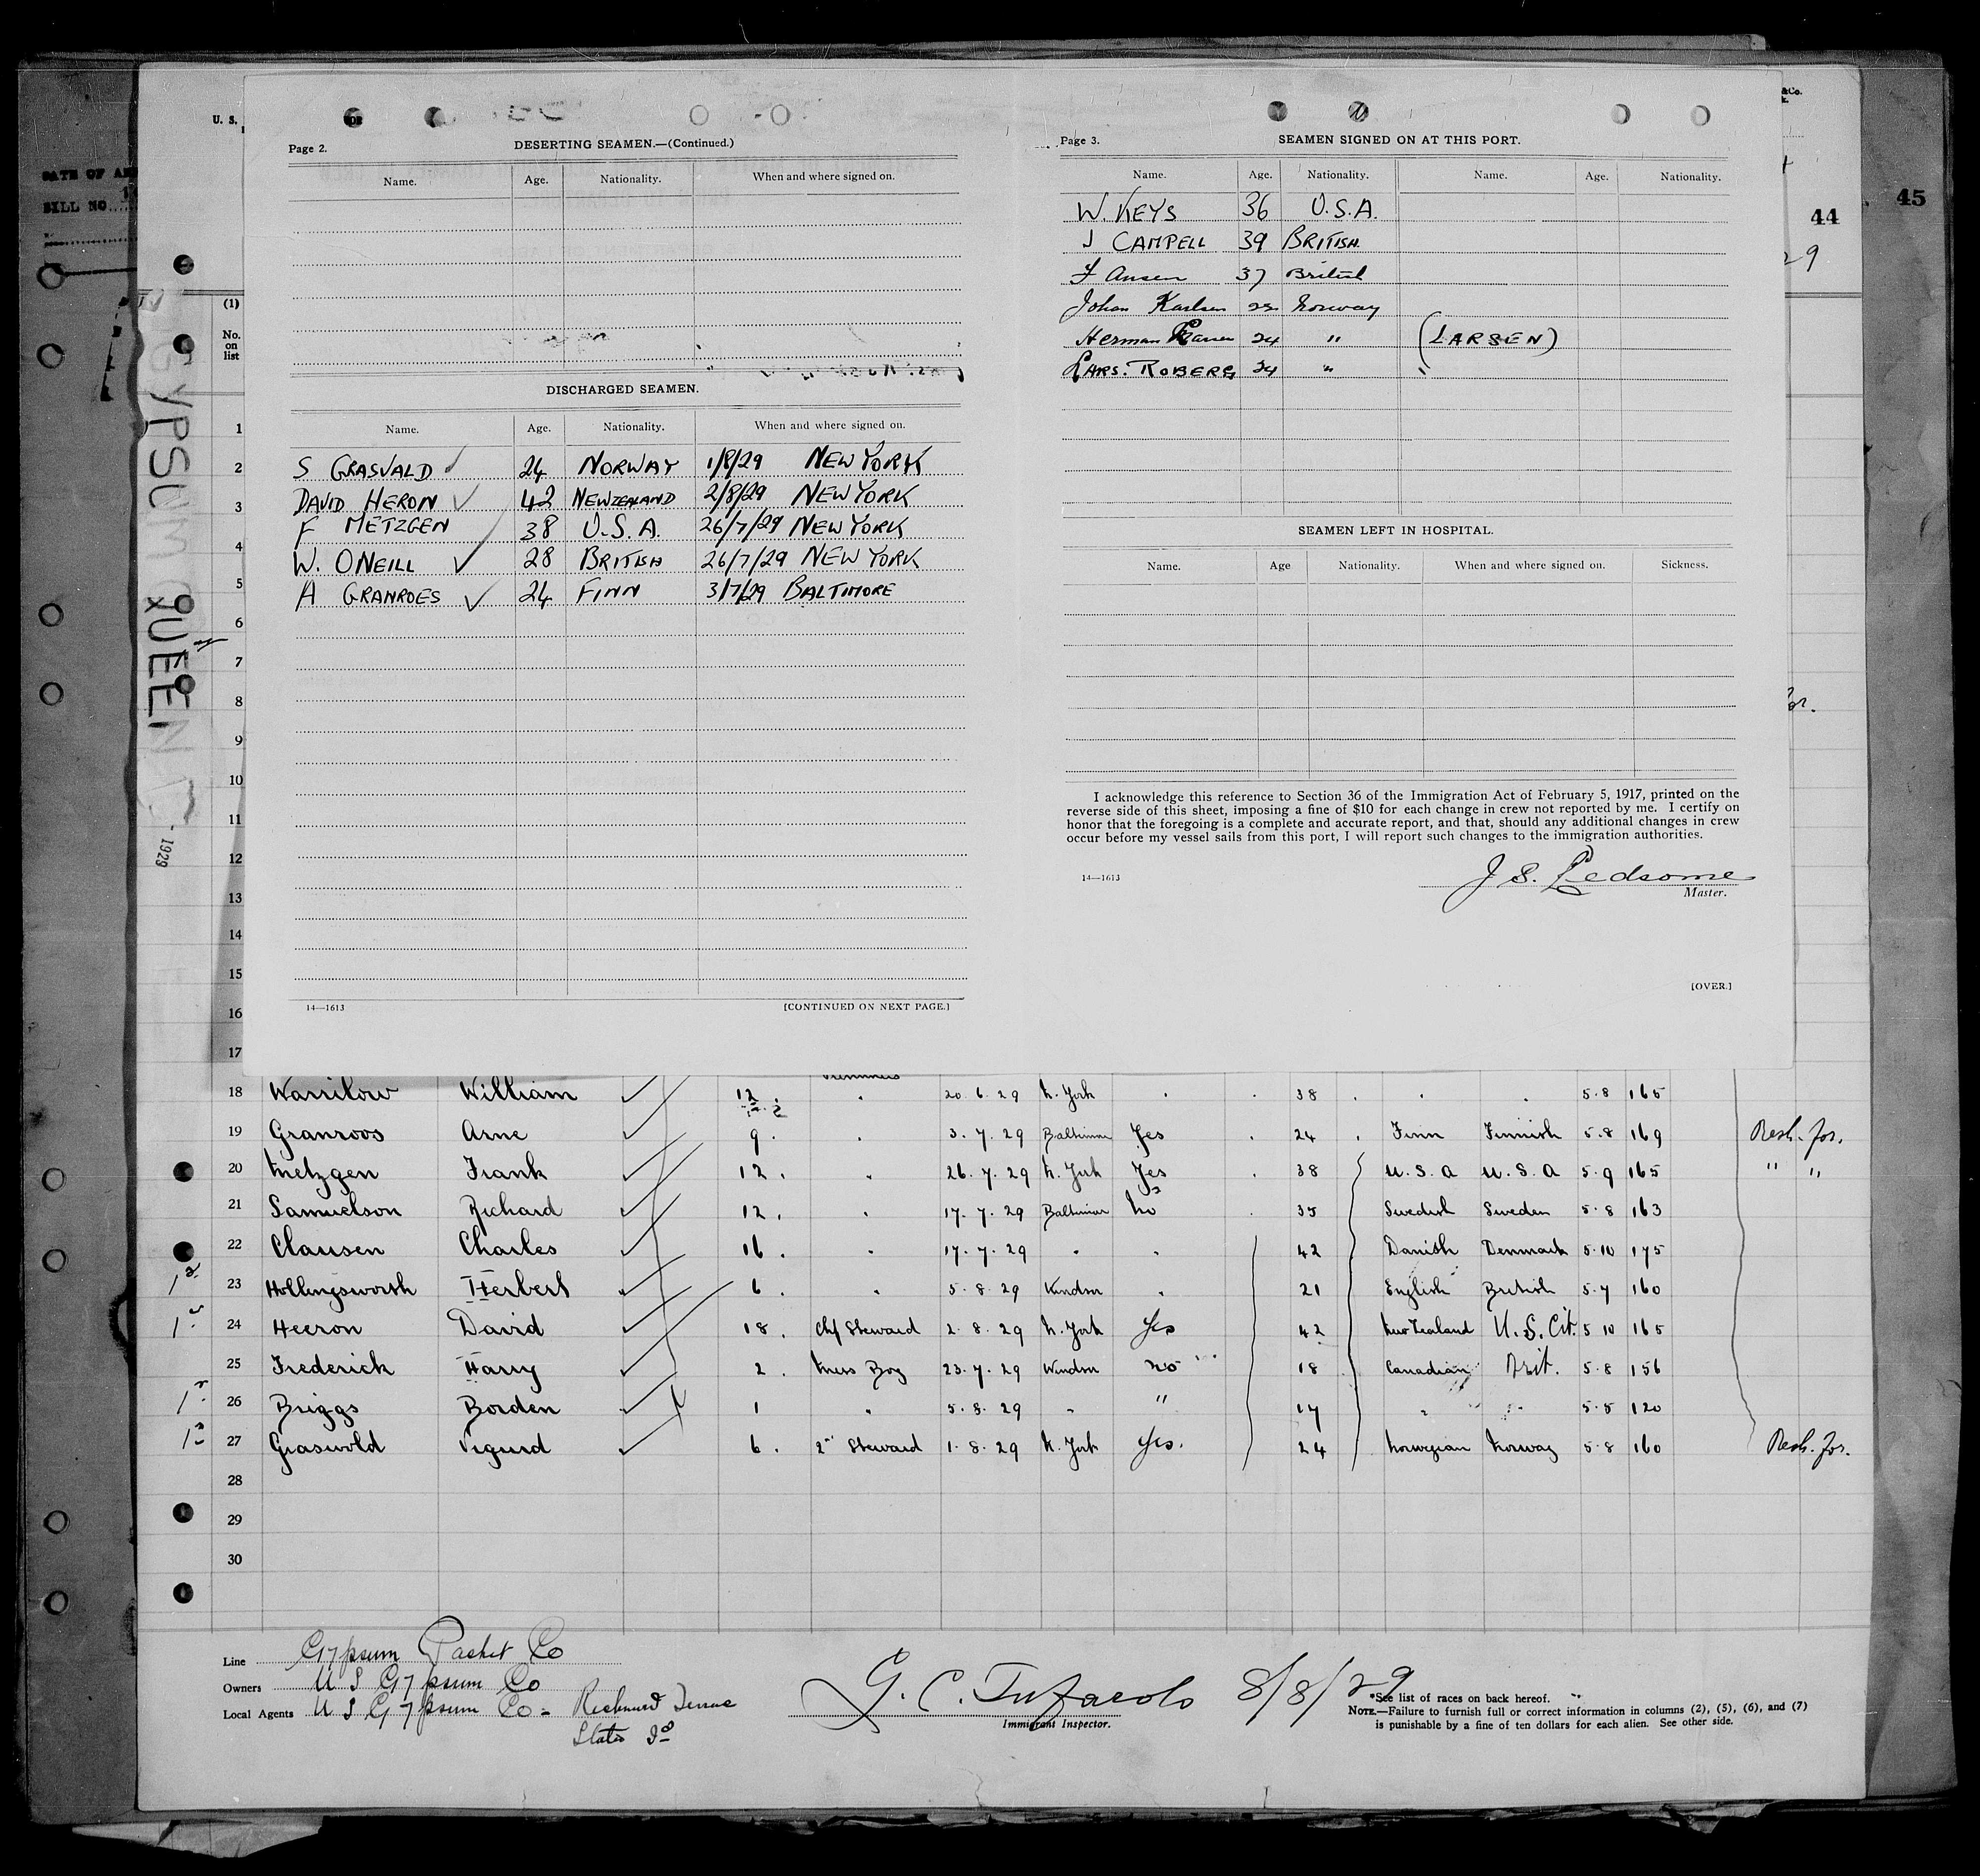 U. S.
DATE OF
BILL NO.
45
44
29
GYPSUM QUEEN
1929
(1)
No. on list
Page 2.
DESERTING SEAMEN.—(Continued.)
Name. Age. Nationality. When and where signed on.
DISCHARGED SEAMEN.
Name. Age. Nationality. When and where signed on.
S GRASVALD 24 NORWAY 1/8/29 NEW YORK
DAVID HERON 42 NEWZEALAND 2/8/29 NEW YORK
F METZGEN 38 U.S.A. 26/7/29 NEW YORK
W. ONEILL 28 BRITISH 26/7/29 NEW YORK
A GRANROES 24 FINN 3/7/29 BALTIMORE
14—1613 [CONTINUED ON NEXT PAGE.]
Page 3.
SEAMEN SIGNED ON AT THIS PORT.
Name. Age. Nationality. Name. Age. Nationality.
W. KEYS 36 U.S.A.
J CAMPELL 39 BRITISH
F 37 British
Johan Karlsen 22 Norway
Herman Larsen 24 " (LARSEN)
LARS. ROBERG 24 "
SEAMEN LEFT IN HOSPITAL.
Name. Age Nationality. When and where signed on. Sickness.
I acknowledge this reference to Section 36 of the Immigration Act of February 5, 1917, printed on the
reverse side of this sheet, imposing a fine of $10 for each change in crew not reported by me. I certify on
honor that the foregoing is a complete and accurate report, and that, should any additional changes in crew
occur before my vessel sails from this port, I will report such changes to the immigration authorities.
14—1613
J S. Ledsome
Master.
[OVER.]
1
2
3
4
5
6
7
8
9
10
11
12
13
14
15
16
17
18 Warrilow William 12 " 20 6 29 N. York " 38 " " 5.8 165
19 Granroos Arne 9 " 3. 7. 29 Baltimore Yes 24 Finn Finnish 5.8 169 Resh. for.
20 Metzgen Frank 12 " 26. 7. 29 N. York Yes 38 U.S.A U.S.A 5.9 165 " "
21 Samuelson Richard 12 " 17. 7. 29 Baltimore No 35 Swedish Sweden 5.8 163
22 Clausen Charles 16 " 17. 7. 29 " " 42 Danish Denmark 5.10 175
23 Hollingsworth Herbert 6 " 5. 8. 29 Windsor " 21 English British 5.7 160
24 Heeron David 18 Chf Steward 2. 8. 29 N. York Yes 42 New Zealand U.S. Cit. 5 10 165
25 Frederick Harry 2 Mess Boy 23. 7. 29 Windsor no 18 Canadian Brit. 5.8 156
26 Briggs Borden 1 " 5. 8. 29 " " 17 " " 5.5 120
27 Graswold Sigurd 6 2nd Steward 1. 8. 29 N. York Yes. 24 Norwegian Norway 5.8 160 Resh. for.
28
29
30
Line Gypsum Packet Co
Owners U S Gypsum Co
Local Agents U S Gypsum Co - Richmond Terrace
Staten Id
G. C. Tufacolo 8/8/29
Immigrant Inspector.
*See list of races on back hereof.
NOTE.—Failure to furnish full or correct information in columns (2), (5), (6), and (7)
is punishable by a fine of ten dollars for each alien. See other side.